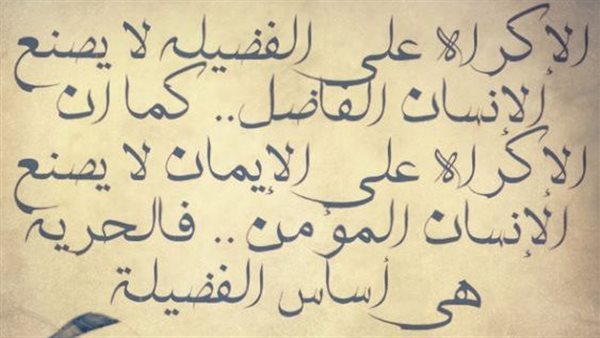 الإكراه على الفضيله لا يصنع
الإنسان الفاضل.. كما ان
الإكراه على الإيمان لا يصنع
الإنسان المؤمن.. فالحريه
هي أساس الفضيلة